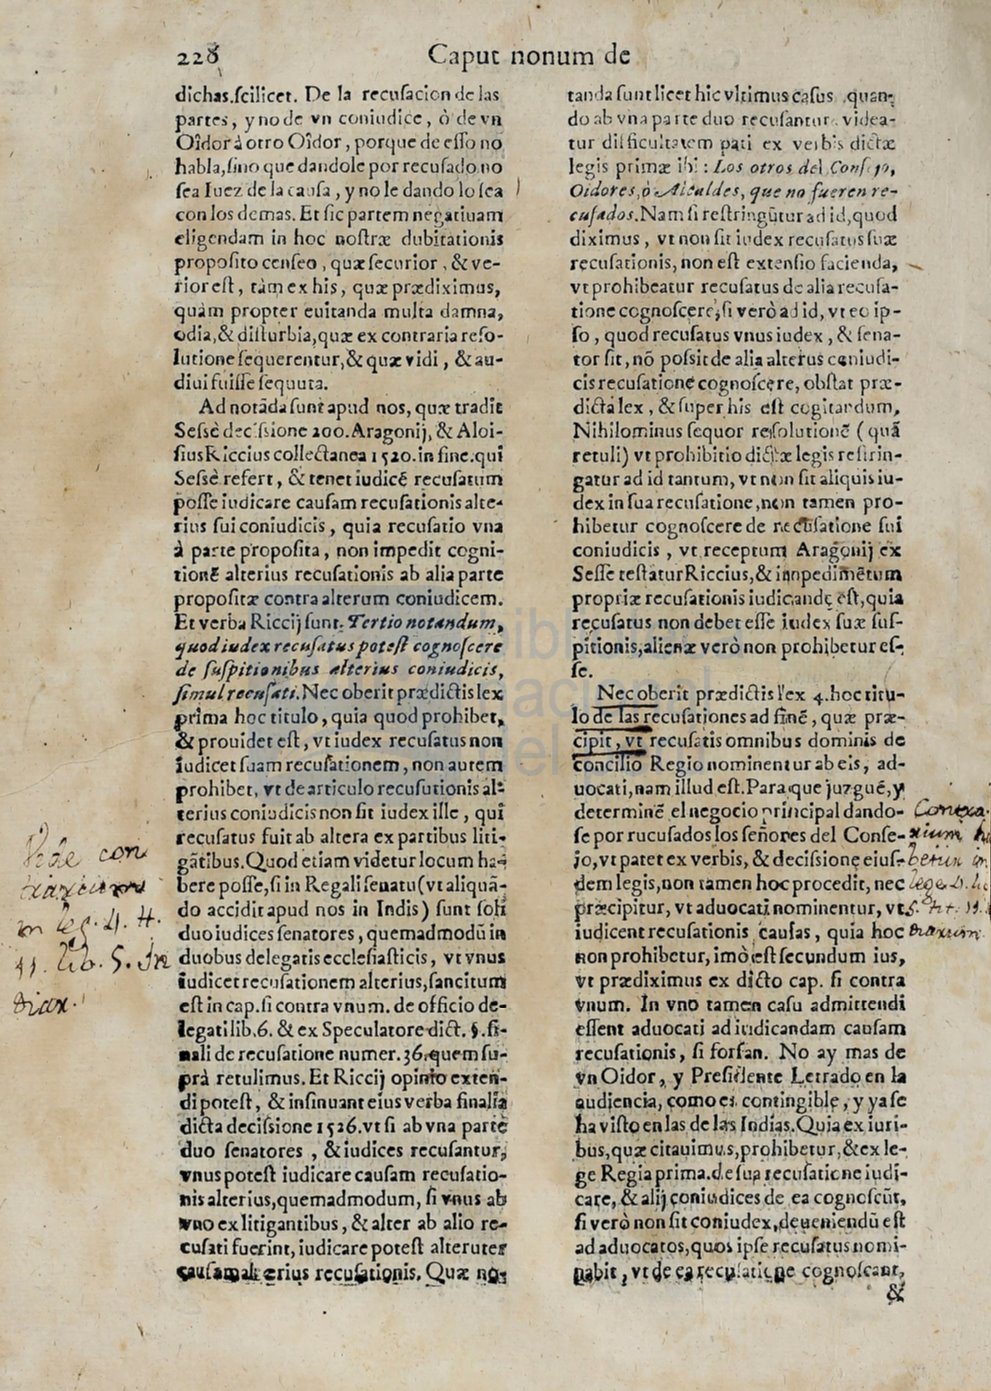 228
Caput nonum de
dichas.ſcilicet. De la recuſacion de las
partes, y no de vn coniudice, ò de vn
Oîdor à otro Oîdor, porque de eſſo no
habla, ſino que dandole por recuſado no
ſea Iuez de la cauſa, y no le dando lo ſea
con los demas. Et ſic partem negatiuam
eligendam in hoc noſtræ dubitationis
propoſito cenſeo, quæ ſecurior, & ve-
rior eſt, tàm ex his, quæ prædiximus,
quàm propter euitanda multa damna,
odia, & diſturbia, quæ ex contraria reſo-
lutione ſequerentur, & quæ vidi, & au-
diui fuiſſe ſequuta.
Ad notãda ſunt apud nos, quæ tradit
Seſsè deciſsione 200. Aragonij, & Aloi-
ſius Riccius collectanea 1520. in fine. qui
Seſsè refert, & tenet iudicẽ recuſatum
poſſe iudicare cauſam recuſationis alte-
rius ſui coniudicis, quia recuſatio vna
à parte propoſita, non impedit cogni-
tionẽ alterius recuſationis ab alia parte
propoſitæ contra alterum coniudicem.
Et verba Riccij ſunt. Tertio notandum,
quod iudex recuſatus poteſt cognoſcere
de ſuſpitionibus alterius coniudicis,
ſimul recuſati. Nec oberit prædictis lex
prima hoc titulo, quia quod prohibet,
& prouidet eſt, vt iudex recuſatus non
iudicet ſuam recuſationem, non autem
prohibet, vt de articulo recuſutionis al-
terius coniudicis non ſit iudex ille, qui
recuſatus fuit ab altera ex partibus liti-
gãtibus. Quod etiam videtur locum ha-
bere poſſe, ſi in Regali ſenatu (vt aliquã-
do accidit apud nos in Indis) ſunt ſoli
duo iudices ſenatores, quemadmodũ in
duobus delegatis eccleſiaſticis, vt vnus
iudicet recuſationem alterius, ſancitum
eſt in cap. ſi contra vnum. de officio de-
legati lib. 6. & ex Speculatore dict. §. fi-
nali de recuſatione numer. 36. quem ſu-
prà retulimus. Et Riccij opinio exten-
di poteſt, & inſinuant eius verba finalia
dicta deciſsione 1526. vt ſi ab vna parte
duo ſenatores, & iudices recuſantur,
vnus poteſt iudicare cauſam recuſatio-
nis alterius, quemadmodum, ſi vnus ab
vno ex litigantibus, & alter ab alio re-
cuſati fuerint, iudicare poteſt alteruter
cauſam alterius recuſationis. Quæ no-
tanda ſunt licet hic vltimus caſus, quan-
do ab vna parte duo recuſantur, videa-
tur difficultatem pati ex verbis dictæ
legis primæ ibi: Los otros del Conſejo,
Oidores, o Alcaldes, que no fueren re-
cuſados. Nam ſi reſtringũtur ad id, quod
diximus, vt non ſit iudex recuſatus ſuæ
recuſationis, non eſt extenſio facienda,
vt prohibeatur recuſatus de alia recuſa-
tione cognoſcere, ſi verò ad id, vt eo ip-
ſo, quod recuſatus vnus iudex, & ſena-
tor ſit, nõ poſsit de alia alterus coniudi-
cis recuſatione cognoſcere, obſtat præ-
dicta lex, & ſuper his eſt cogitandum,
Nihilominus ſequor reſolutionẽ (quã
retuli) vt prohibitio dictæ legis reſtrin-
gatur ad id tantum, vt non ſit aliquis iu-
dex in ſua recuſatione, non tamen pro-
hibetur cognoſcere de recuſatione ſui
coniudicis, vt receptum Aragonij ex
Seſſe teſtatur Riccius, & impedimẽtum
propriæ recuſationis iudicandę eſt, quia
recuſatus non debet eſſe iudex ſuæ ſuſ-
pitionis, alienæ verò non prohibetur eſ-
ſe.
Nec oberit prædictis lex 4. hoc titu-
lo de las recuſationes ad finẽ, quæ præ-
cipit, vt recuſatis omnibus dominis de
concilio Regio nominentur ab eis, ad-
uocati, nam illud eſt. Para que juzguẽ, y
determinẽ el negocio principal dando-
ſe por rucuſados los ſeñores del Conſe-
jo, vt patet ex verbis, & deciſsione eiuſ-
dem legis, non tamen hoc procedit, nec
præcipitur, vt aduocati nominentur, vt
iudicent recuſationis cauſas, quia hoc
non prohibetur, imò eſt ſecundum ius,
vt prædiximus ex dicto cap. ſi contra
vnum. In vno tamen caſu admittendi
eſſent aduocati ad iudicandam cauſam
recuſationis, ſi forſan. No ay mas de
vn Oidor, y Preſidente Letrado en la
audiencia, como es contingible, y ya ſe
ha viſto en las de las Indias. Quia ex iuri-
bus, quæ citauimus, prohibetur, & ex le-
ge Regia prima. de ſua recuſatione iudi-
care, & alij coniudices de ea cognoſcũt,
ſi verò non ſit coniudex, deueniendũ eſt
ad aduocatos, quos ipſe recuſatus nomi-
nabit, vt de ea recuſatione cognoſcant,
&
Vide con
in leg. 4. tt.
11. lib. 5. In
diar.